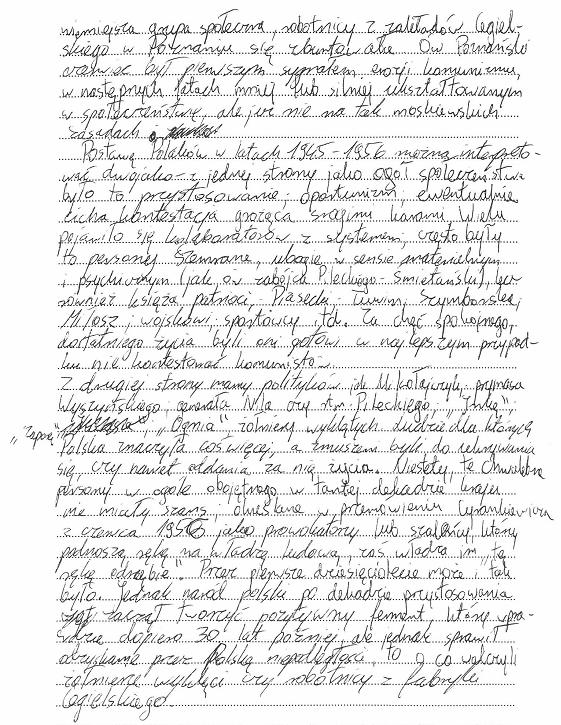 niemiejsza grupa społeczna, robotnicy z zakładów Cegiel-
skiego w Poznaniu się zbuntowała. Ów Poznański
czerwiec był pierwszym sygnałem erozji komunizmu,
w następnych latach mniej lub silniej ukształtowanym
w społeczeństwie, ale już nie na tak moskiewskich
zasadach
Postawę Polaków w latach 1945-1956 można interpreto-
wać dwojako - z jednej strony jako ogół społeczeństwa
było to przystosowanie, oportunizm, ewentualnie
cicha kontestacja grożąca srogimi karami. Wielu
pojawiło się kolaborantów z systemem, często były
to persony szemrane, ubogie w sensie materialnym
i psychicznym (jak ów zabójca Pileckiego - Śmietański), lecz
również księża patrioci, Piasecki, Tuwim, Szymborska,
Miłosz, wojskowi, sportowcy itd. Za chęć spokojnego,
dostatniego życia byli oni gotowi w najlepszym przypad-
ku nie kontestować komunistów.
Z drugiej strony mamy polityków jak Mikołajczyk, prymasa
Wyszyńskiego, generała Nila czy rtm. Pileckiego, "Inkę",
"Zaporę", "Ognia" żołnierzy wyklętych ludzie dla których
Polska znaczyła coś więcej, a zmuszeni byli do ukrywania
się, czy nawet oddania za nią życia. Niestety, te chwalebne
persony w ogóle obojętnego w tamtej dekadzie kraju
nie miały szans, określane w przemówieniu Cyrankiewicza
z czerwca 1956 jako prowokatorzy lub szaleńcy, którzy
podnoszą rękę na władzę ludową, zaś władza im "tę
rękę odrąbie". Przez pierwsze dziesięciolecie może i tak
było. Jednak naród polski po dekadzie przystosowania
zaczął tworzyć pozytywny ferment, który wpra-
wdzie dopiero 30 lat później, ale jednak sprawił
odzyskanie przez Polskę niepodległości. To o co walczyli
żołnierze wyklęci czy robotnicy z fabryki
Cegielskiego.